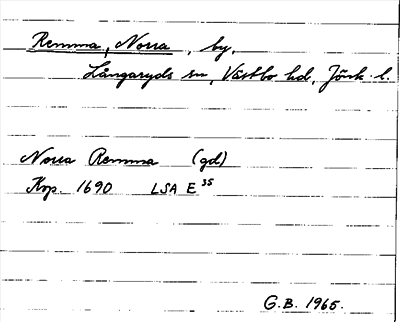 Remma, Norra, by,
Långaryds sn, Västbo hd, Jönk. l.
Norra Remma (gd)
Krp. 1690 LSA E 35
G.B. 1965.